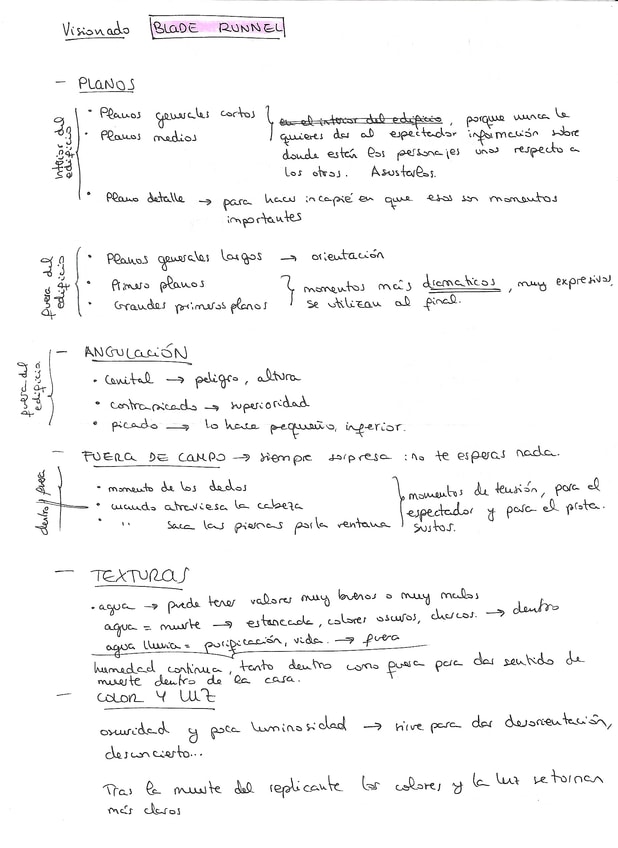 Visionado BLADE RUNNEL
– PLANOS
Interior del edificio
• Planos generales cortos
• Planos medios
en el interior del edificio, porque nunca le
quieres dar al espectador información sobre
donde están los personajes unos respecto a
los otros. Asustarlos.
• Plano detalle → para hacer incapié en que esos son momentos
importantes
fuera del edificio
• Planos generales largos → orientación
• Primero planos
• Grandes primeros planos
momentos más dramaticos, muy expresivos,
se utilizan al final.
fuera del edificio
– ANGULACIÓN
• cenital → peligro, altura
• contrapicado → superioridad
• picado → lo hace pequeño, inferior.
– FUERA DE CAMPO → siempre sorpresa: no te esperas nada.
dentro y fuera
• momento de los dedos
• cuando atraviesa la cabeza
• " saca las piernas por la ventana
momentos de tensión, para el
espectador y para el prota.
sustos.
– TEXTURAS
• agua → puede tener valores muy buenos o muy malos
agua = muerte → estancada, colores oscuros, charcos. → dentro
agua lluvia = purificación, vida. → fuera
humedad continua, tanto dentro como fuera para dar sentido de
muerte dentro de la casa.
– COLOR Y LUZ
oscuridad y poca luminosidad → sirve para dar desorientación,
desconcierto...
Tras la muerte del replicante los colores y la luz se tornan
más claros